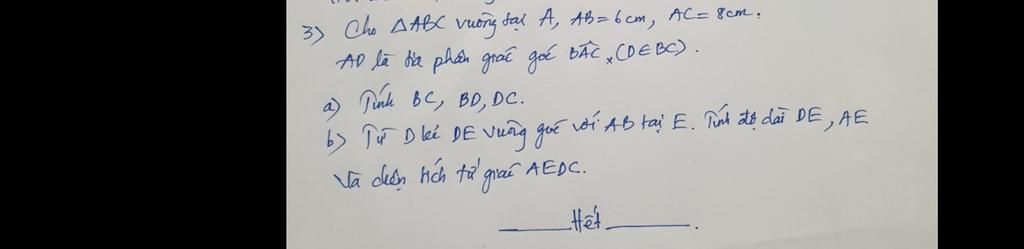 3) Cho △ABC vuông tại A, AB = 6cm, AC = 8cm.
AD là tia phân giác góc BÂC (D∈BC).
a) Tính BC, BD, DC.
b) Từ D kẻ DE vuông góc với AB tại E. Tính độ dài DE, AE
và diện tích tứ giác AEDC.
Hết